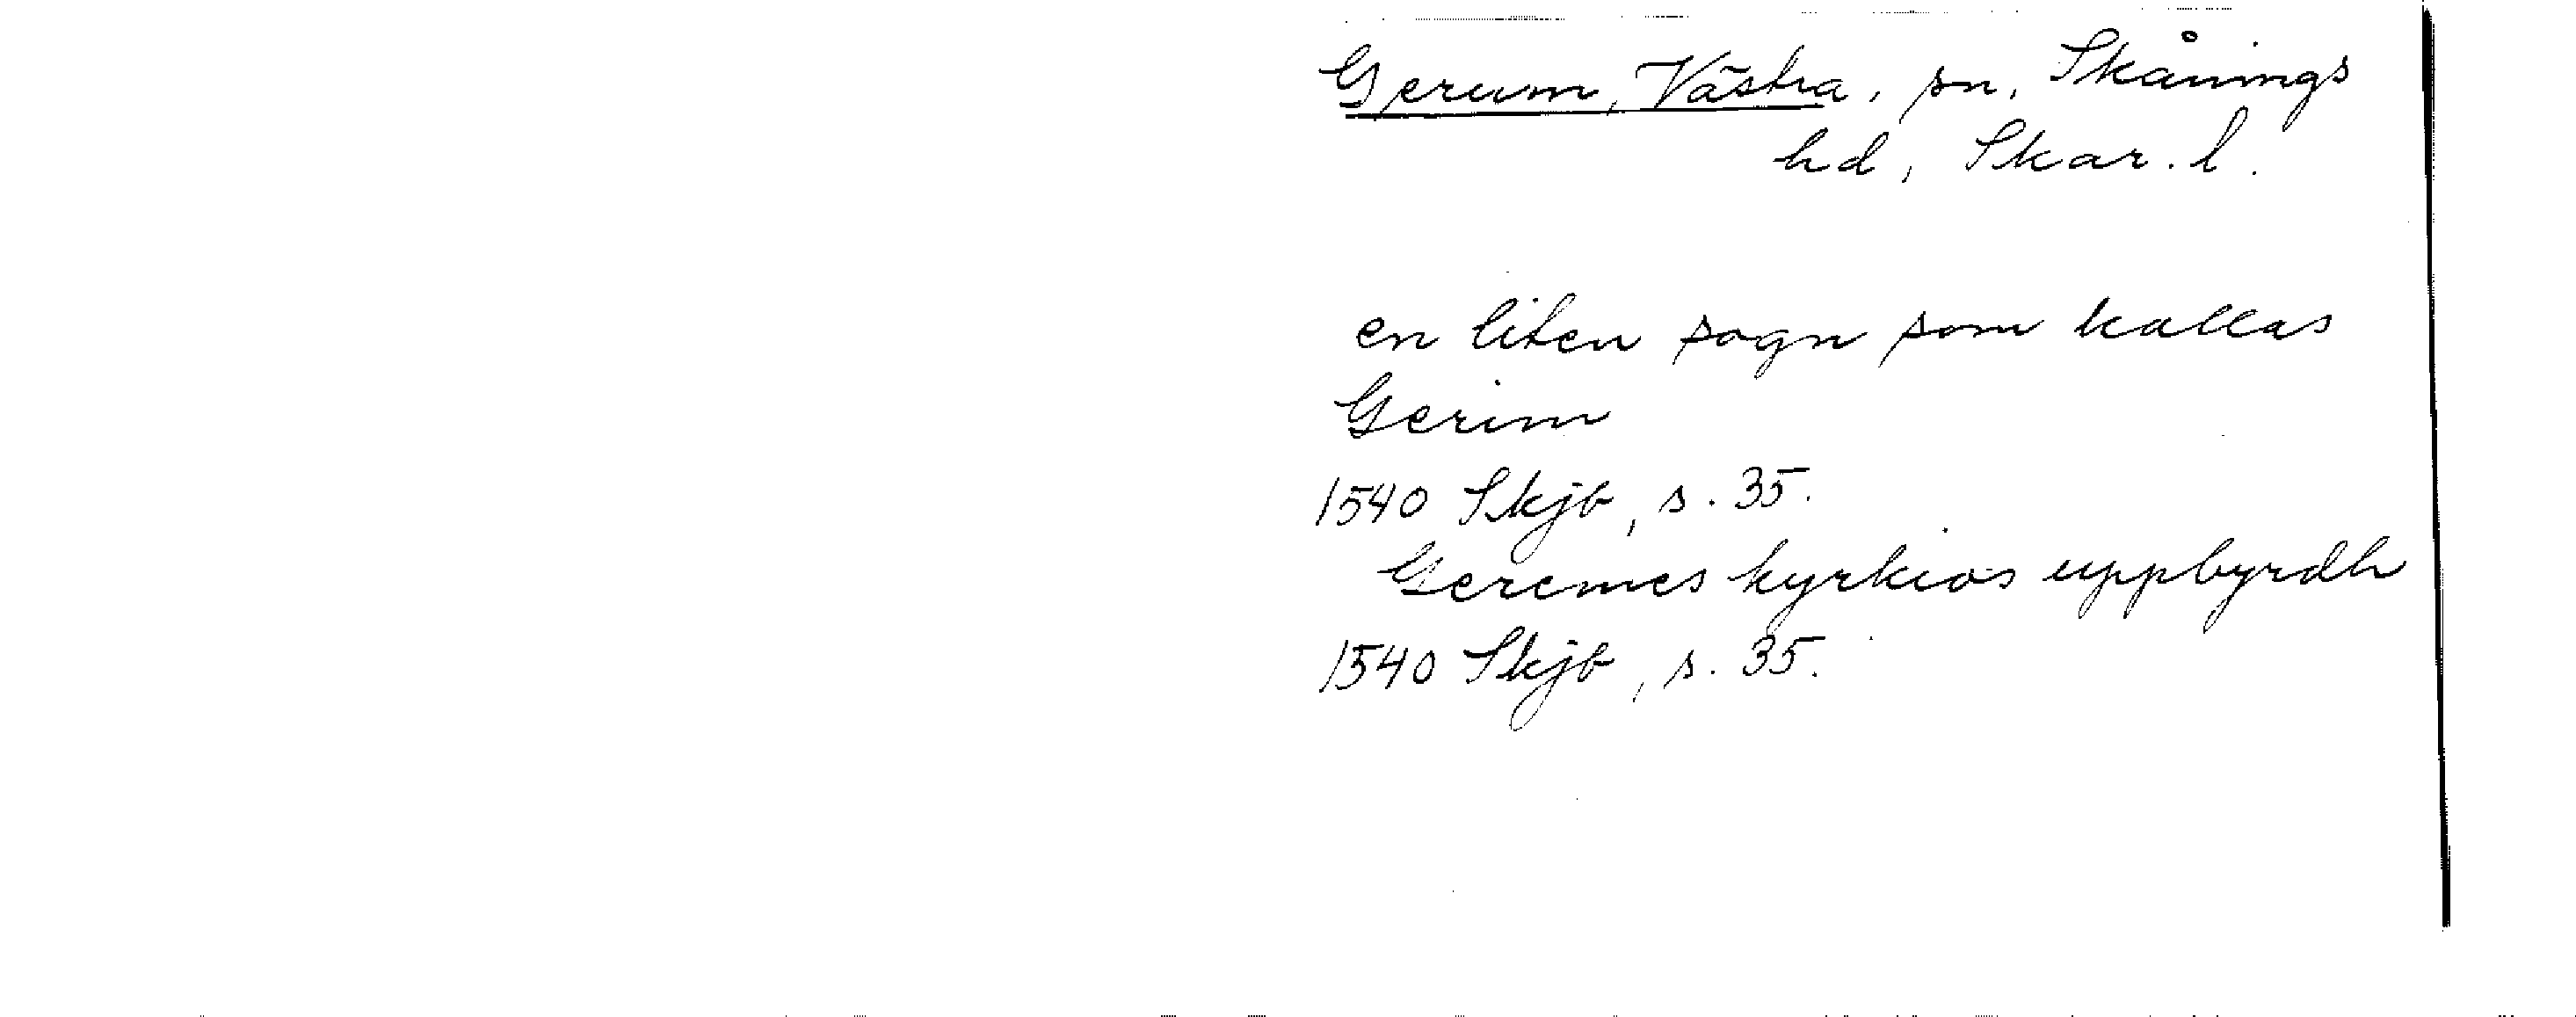 Gerum, Västra, sn, Skånings
hd, Skar. l.
en liten sogn som kallas
Gerim
1540 Skjb, s. 35.
Geremes kyrkios uppbyrdh
1540 Skjb, s. 35.